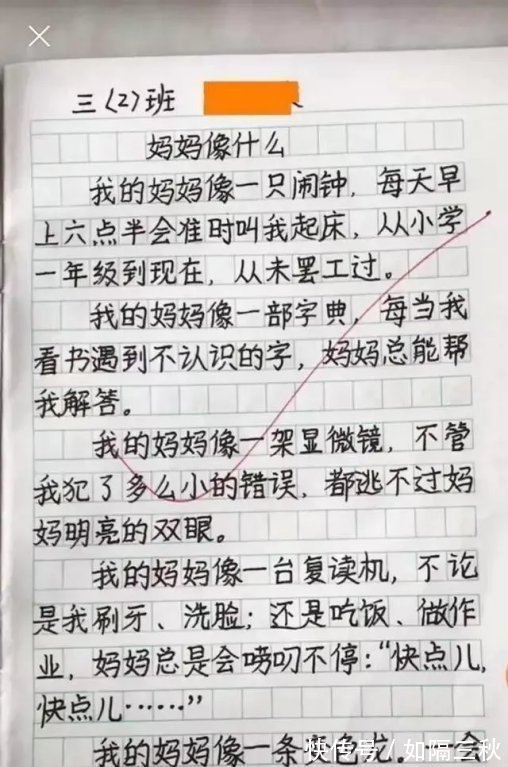 三(2)班
妈妈像什么
我的妈妈像一只闹钟，每天早
上六点半会准时叫我起床，从小学
一年级到现在，从未罢工过。
我的妈妈像一部字典，每当我
看书遇到不认识的字，妈妈总能帮
我解答。
我的妈妈像一架显微镜，不管
我犯了多么小的错误，都逃不过妈
妈明亮的双眼。
我的妈妈像一台复读机，不论
是我刷牙、洗脸；还是吃饭、做作
业，妈妈总是会唠叨不停：“快点儿，
快点儿……”
我的妈妈像一条
快传号 / 如隔三秋